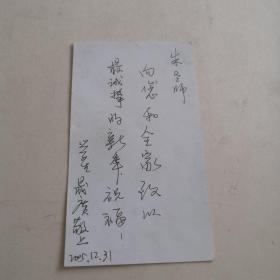 朱老师
向您和全家致以
最诚挚的新年祝福！
学生 晟广 敬上
2005.12.31